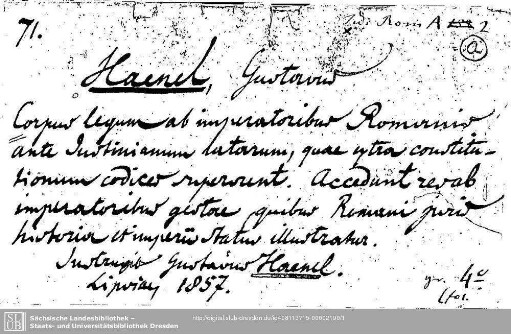 71.
Jur. Rom A 2
a
Haenel, Gustavus
Corpus legum ab imperatoribus Romanis
ante Iustinianum latarum, quae extra constitu-
tionum codices supersunt. Accedunt res ab
imperatoribus gestae, quibus Romani juris
historia et imperii status illustratur.
Instruxit Gustavus Haenel.
Lipsiae, 1857.
gr. 4º
Sächsische Landesbibliothek –
Staats- und Universitätsbibliothek Dresden